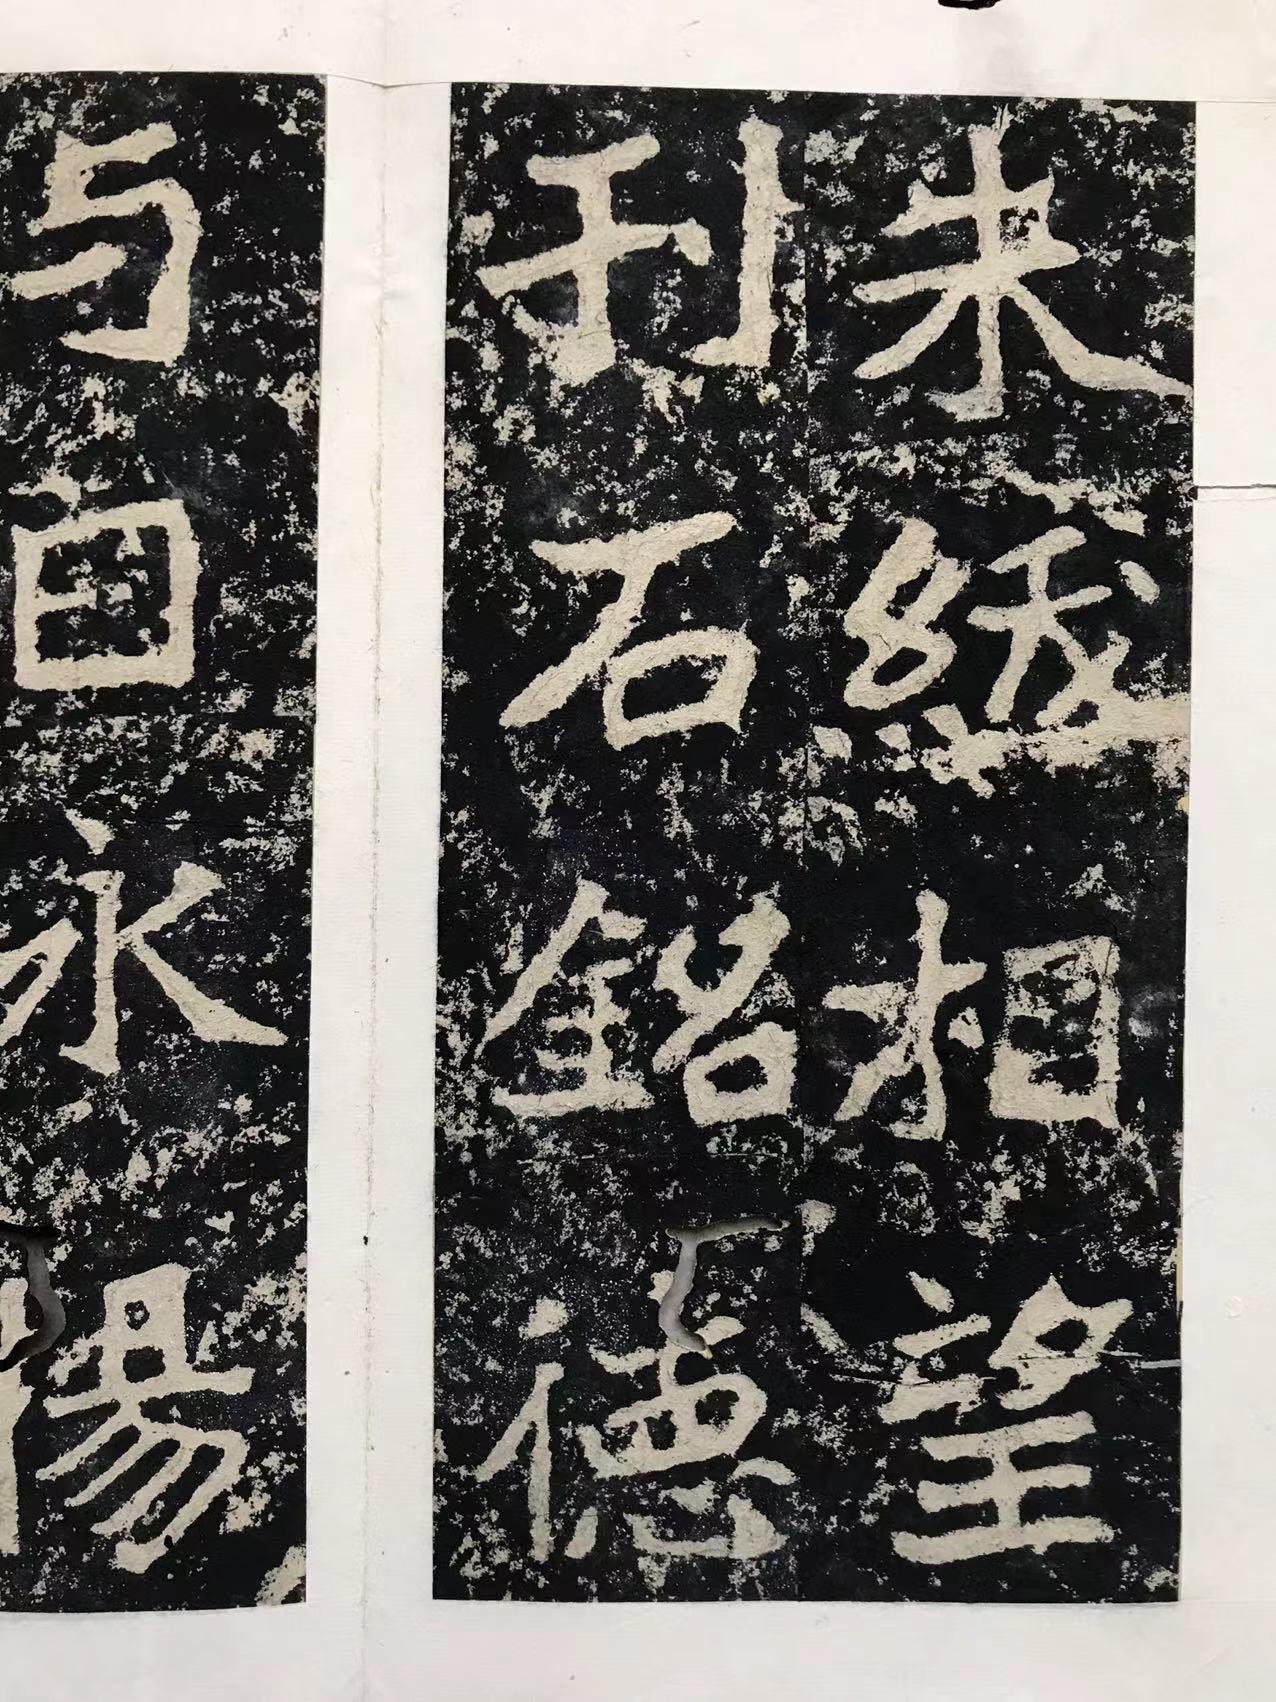 朱紱相望
刊石銘德
与日永揚